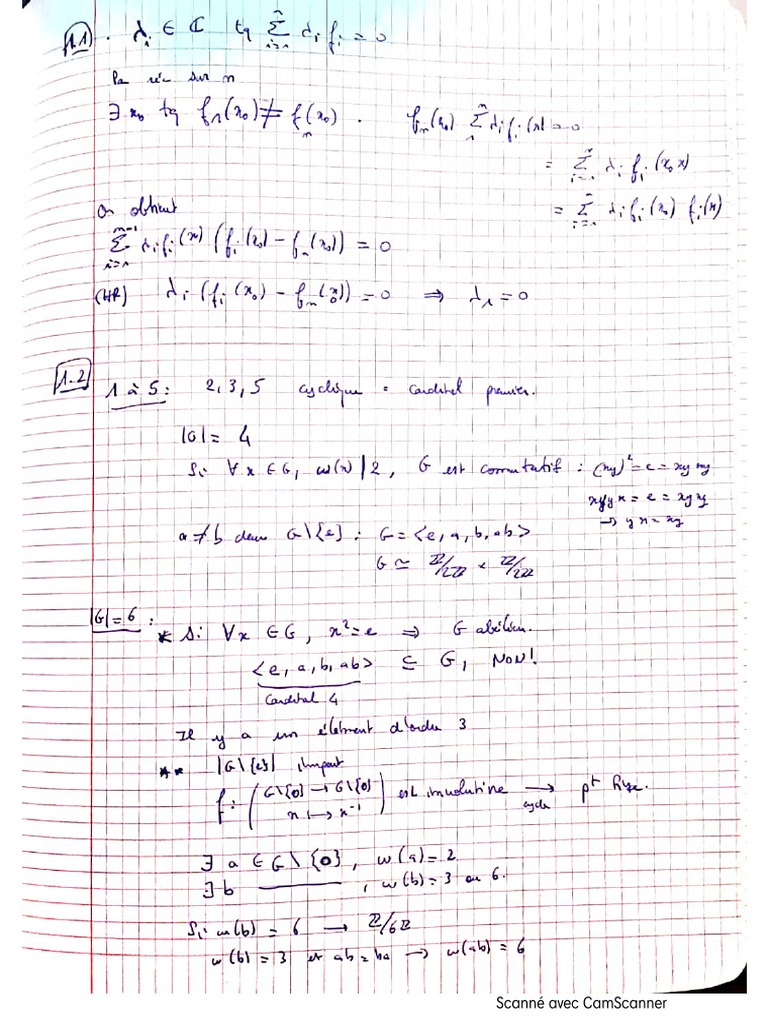 1.1) . λᵢ ∈ ℂ tq Σ_{i=1}^{n} λᵢ fᵢ = 0
Par réc sur n
∃ x₀ tq f₁(x₀) ≠ f_n(x₀) . f_n(x₀) Σ_{1}^{n} λᵢ fᵢ(x) = 0
= Σ_{i=1}^{n} λᵢ fᵢ(x₀x)
= Σ_{i=1}^{n} λᵢ fᵢ(x₀) fᵢ(x)
On obtient
Σ_{i=1}^{n-1} λᵢ fᵢ(x) (fᵢ(x₀) - f_n(x₀)) = 0
(HR) λᵢ (fᵢ(x₀) - f_n(x₀)) = 0 ⇒ λ₁ = 0
1.2
1 à 5 : 2, 3, 5 cyclique = cardinal premier.
|G| = 4
Si ∀x ∈ G, ω(x) | 2, G est commutatif : (xy)² = e = xy xy
xyyx = e = xyxy
→ yx = xy
a ≠ b dans G\{e} : G = <e, a, b, ab>
G ≃ ℤ/2ℤ × ℤ/2ℤ
|G| = 6 :
* Si ∀x ∈ G, x² = e ⇒ G abélien.
<e, a, b, ab> ⊆ G, NON!
Cardinal 4
Il y a un élément d'ordre 3
** |G\{e}| impair
f : ( G\{0} → G\{0}
x ⟼ x⁻¹ ) est involutive ⟶ pt fixe.
cycle
∃ a ∈ G\{0}, ω(a) = 2
∃ b ———, ω(b) = 3 ou 6.
Si ω(b) = 6 ⟶ ℤ/6ℤ
ω(b) = 3 et ab = ba ⟶ ω(ab) = 6
Scanné avec CamScanner